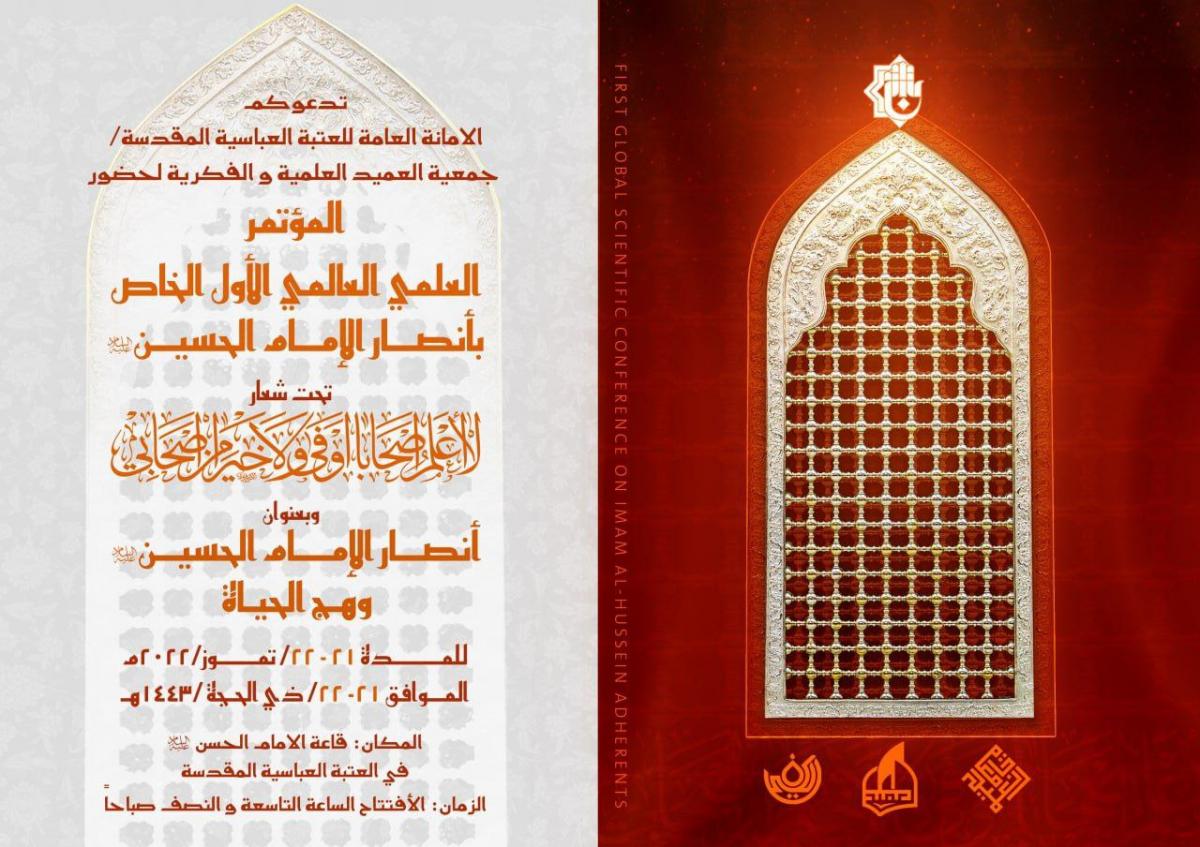 تدعوكم
الامانة العامة للعتبة العباسية المقدسة/
جمعية العميد العلمية و الفكرية لحضور
المؤتمر
العلمي العالمي الأول الخاص
بأنصار الإمام الحسين
تحت شعار
لا أعلم أصحابا أوفى ولا خيرا من أصحابي
وبعنوان
أنصار الإمام الحسين
وهج الحياة
للمدة ٢١-٢٢/ تموز/٢٠٢٢م
الموافق ٢١-٢٢/ ذي الحجة /١٤٤٣هـ
المكان: قاعة الامام الحسن
في العتبة العباسية المقدسة
الزمان: الأفتتاح الساعة التاسعة و النصف صباحاً
FIRST GLOBAL SCIENTIFIC CONFERENCE ON IMAM AL-HUSSEIN ADHERENTS